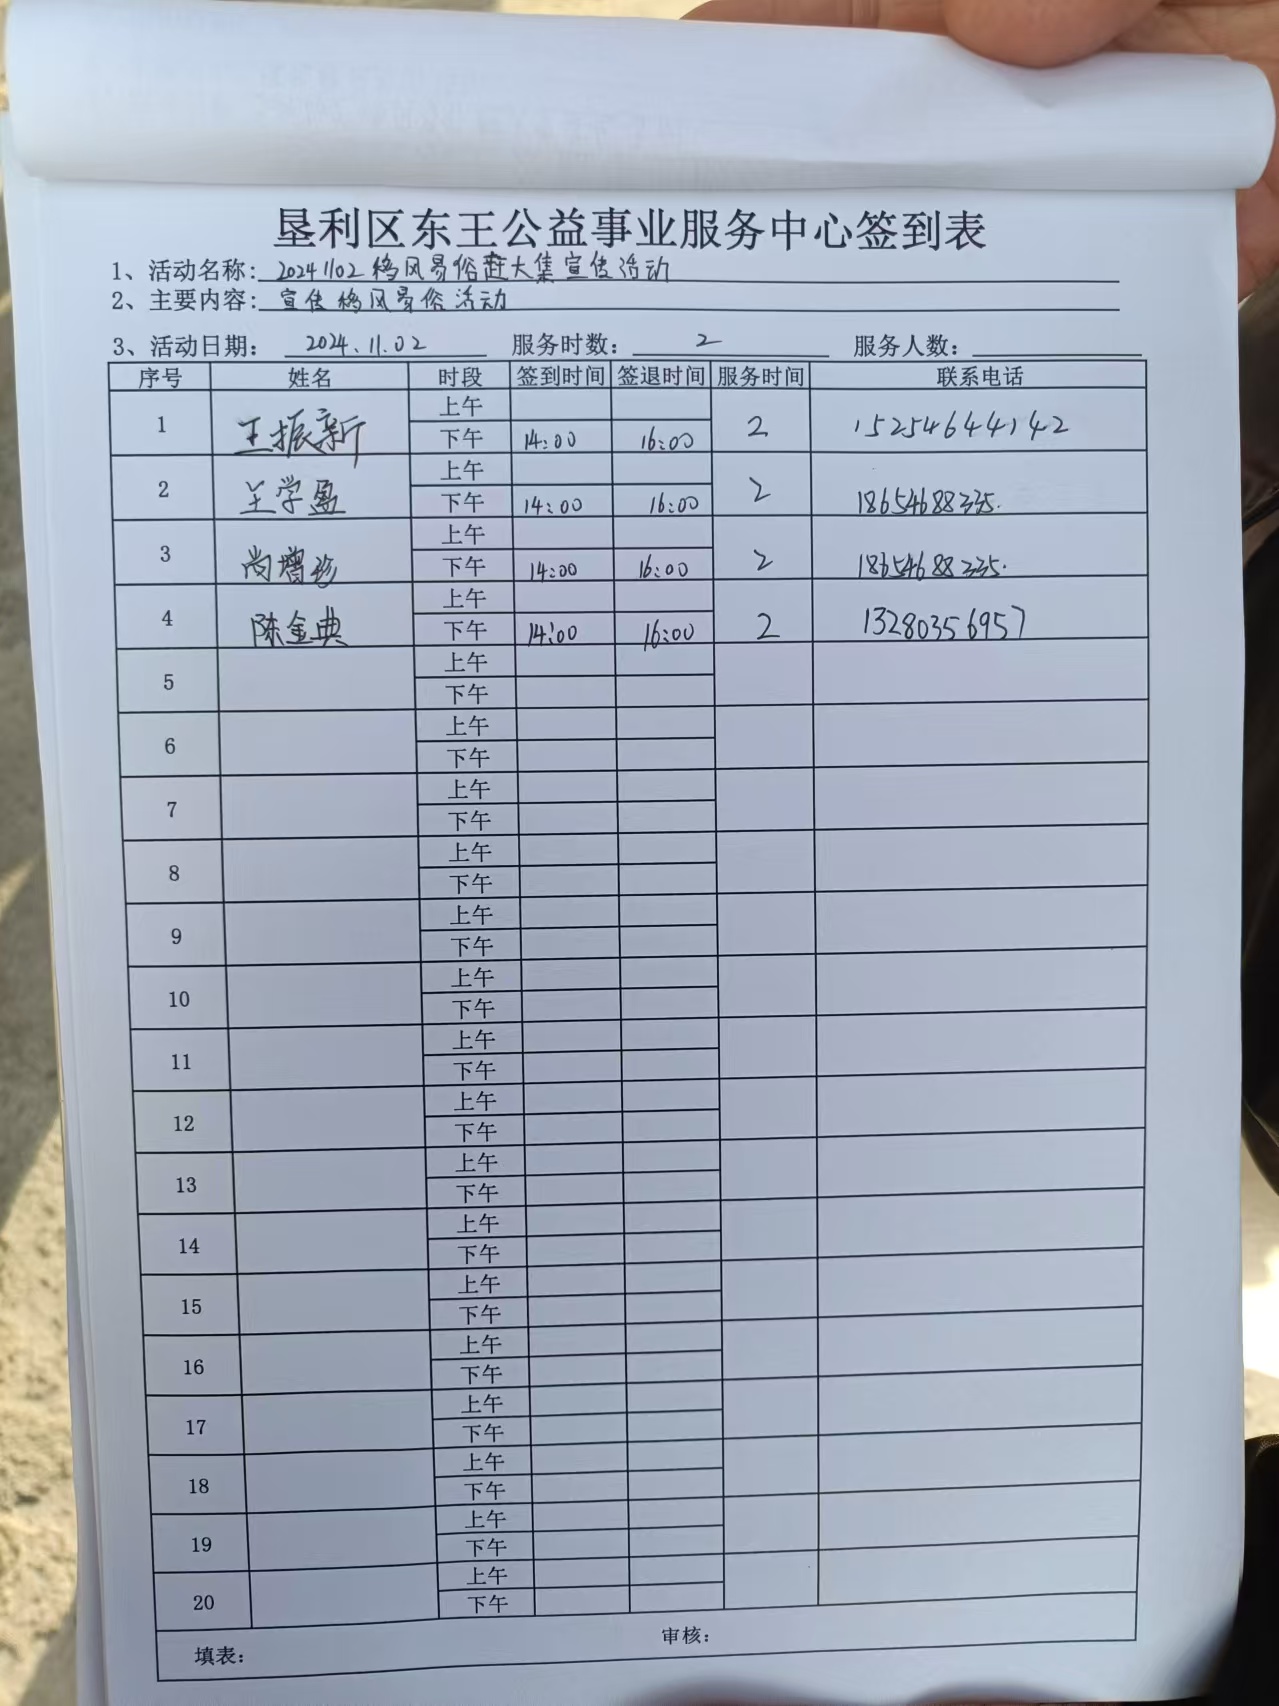 垦利区东王公益事业服务中心签到表
1、活动名称: 20241102移风易俗赶大集宣传活动
2、主要内容: 宣传移风易俗活动
3、活动日期: 2024.11.02 服务时数: 2 服务人数:
序号 姓名 时段 签到时间 签退时间 服务时间 联系电话
上午
1 王振新 2 15254644142
下午 14:00 16:00
上午
2 王学盈 2 18654688335.
下午 14:00 16:00
上午
3 尚增珍 2 18654688335.
下午 14:00 16:00
上午
4 陈金典 2 13280356957
下午 14:00 16:00
上午
5
下午
上午
6
下午
上午
7
下午
上午
8
下午
上午
9
下午
上午
10
下午
上午
11
下午
上午
12
下午
上午
13
下午
上午
14
下午
上午
15
下午
上午
16
下午
上午
17
下午
上午
18
下午
上午
19
下午
上午
20
下午
填表: 审核: